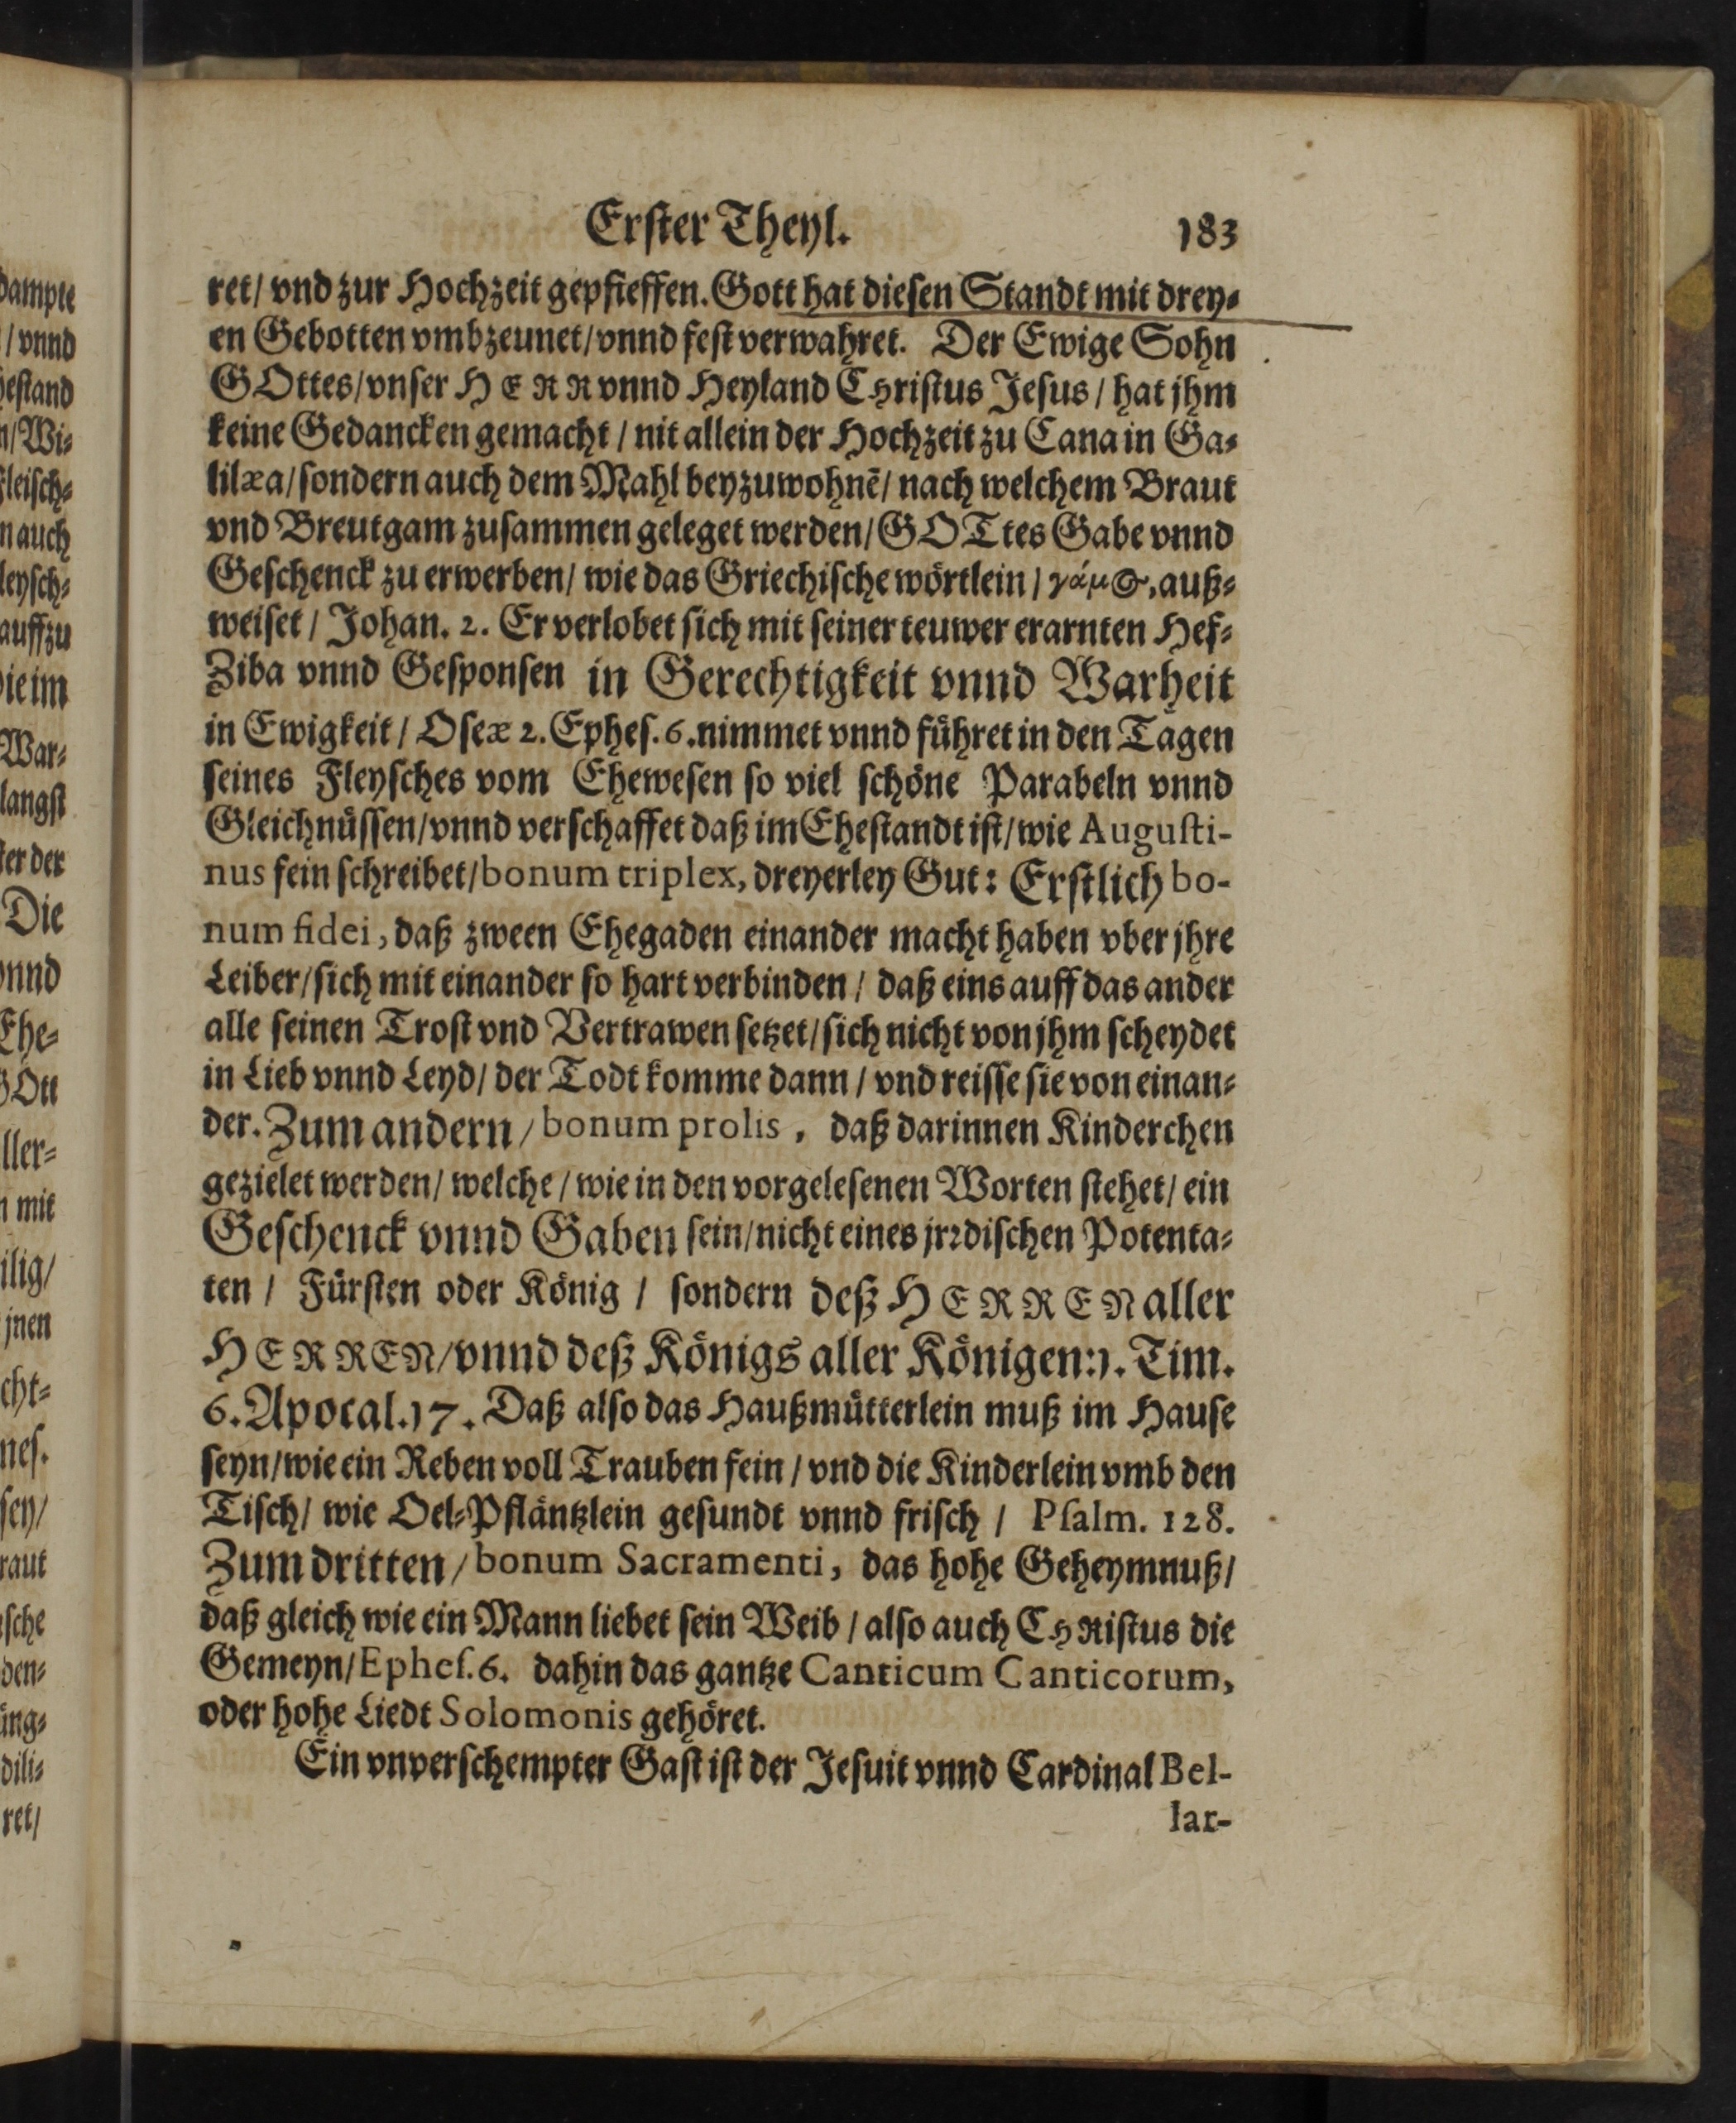 Erster Theyl. 183
ret/ vnd zur Hochzeit gepfieffen. Gott hat diesen Standt mit drey-
en Gebotten vmbzeunet/ vnnd fest verwahret. Der Ewige Sohn
GOttes/ vnser HERR vnnd Heyland Christus Jesus / hat jhm
keine Gedancken gemacht / nit allein der Hochzeit zu Cana in Ga-
lilæa/ sondern auch dem Mahl beyzuwohnē/ nach welchem Braut
vnd Breutgam zusammen geleget werden/ GOTtes Gabe vnnd
Geschenck zu erwerben/ wie das Griechische wörtlein / γάμος, auß-
weiset / Johan. 2. Er verlobet sich mit seiner teuwer erarnten Hef-
Ziba vnnd Gesponsen in Gerechtigkeit vnnd Warheit
in Ewigkeit / Oseæ 2. Ephes. 6. nimmet vnnd führet in den Tagen
seines Fleysches vom Ehewesen so viel schöne Parabeln vnnd
Gleichnüssen/ vnnd verschaffet daß im Ehestandt ist/ wie Augusti-
nus fein schreibet/ bonum triplex, dreyerley Gut: Erstlich bo-
num fidei, daß zween Ehegaden einander macht haben vber jhre
Leiber/ sich mit einander so hart verbinden / daß eins auff das ander
alle seinen Trost vnd Vertrawen setzet/ sich nicht von jhm scheydet
in Lieb vnnd Leyd/ der Todt komme dann / vnd reisse sie von einan-
der. Zum andern / bonum prolis, daß darinnen Kinderchen
gezielet werden/ welche / wie in den vorgelesenen Worten stehet/ ein
Geschenck vnnd Gaben sein/ nicht eines jrrdischen Potenta-
ten / Fürsten oder König / sondern deß HERREN aller
HERREN/ vnnd deß Königs aller Königen: 1. Tim.
6. Apocal. 17. Daß also das Haußmütterlein muß im Hause
seyn/ wie ein Reben voll Trauben fein / vnd die Kinderlein vmb den
Tisch/ wie Oel-Pfläntzlein gesundt vnnd frisch / Psalm. 128.
Zum dritten / bonum Sacramenti, das hohe Geheymnuß/
daß gleich wie ein Mann liebet sein Weib / also auch CHRistus die
Gemeyn/ Ephes. 6. dahin das gantze Canticum Canticorum,
oder hohe Liedt Solomonis gehöret.
Ein vnverschempter Gast ist der Jesuit vnnd Cardinal Bel-
lar-